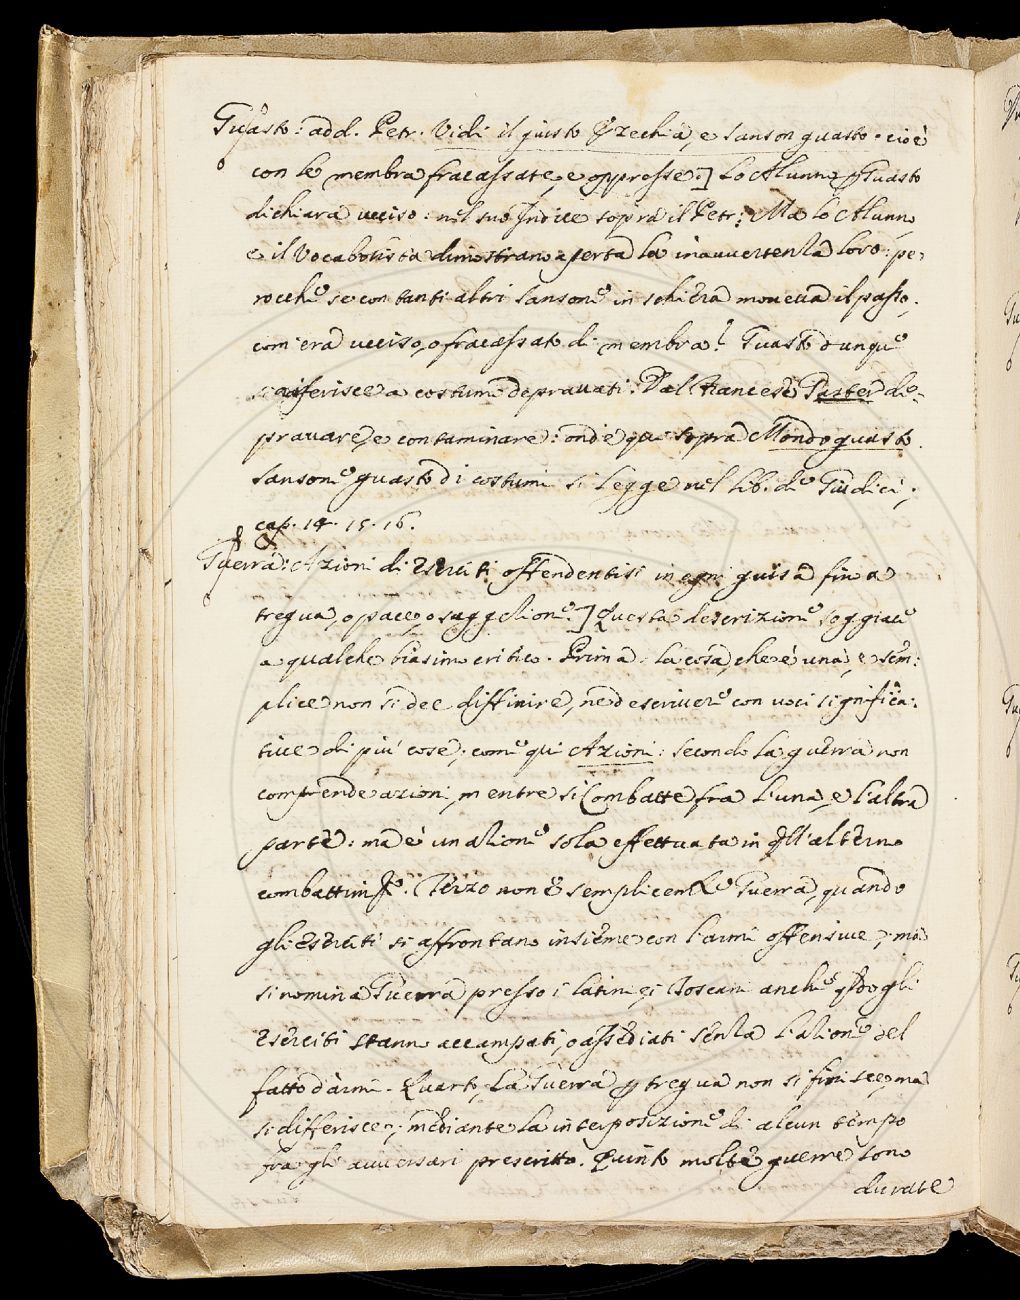 Guasto: add. Petr. Vidi il giusto Ezechia, e Sanson guasto. cioè
con le membra fracassate, e oppresse.] Lo Alunno Guasto
dichiara ucciso: nel suo Indice sopra il Petr: Ma lo Alunno
e il Vocabolista dimostrano aperta la inauuertenza loro: pe-
rocche se con tanti altri Sansone in schiera moueua il passo,
com' era ucciso, o fracassato di membra? Guasto dunque
si riferisce a costumi deprauati. Dal Francese Gaster de-
prauare, e contaminare: onde qui sopra Mondo guasto.
Sansone guasto di costumi si legge nel lib. de Giudici,
cap. 14. 15. 16.
Guerra: Azioni di Eserciti offendentisi in ogni guisa fin a
tregua, o pace, o suggezione.] Questa descrizione soggiace
a qualche biasimo critico. Prima: la cosa, che è una, e sem:
plice non si dee diffinire, ne descriuere con uoci significa:
tiue di più cose, come qui Azioni: Secondo la guerra non
comprende azioni, mentre si Combatte fra l'una, e l'altra
parte: ma è un'azione sola effettuata in quell'alterno
combattimto. Terzo non è semplicemte Guerra, quando
gli Eserciti si affrontano insieme con l'armi offensiue, ma
si nomina Guerra presso i latini, e i Toscani anche qdo gli
Eserciti stanno accampati, o assediati senza l'azione del
fatto d'armi. Quarto, La Guerra p tregua non si finisce, ma
si differisce, mediante la interposizione di alcun tempo
fra gli auuersari prescritto. Quinto molte guerre sono
durate